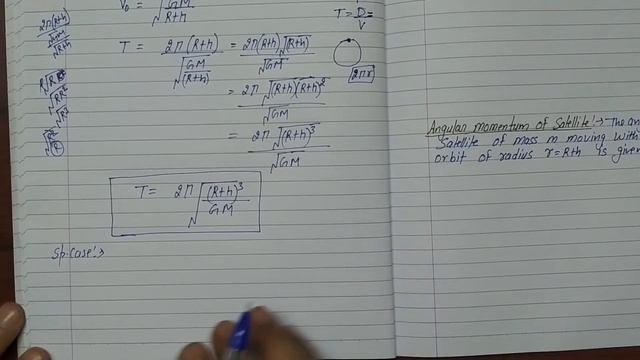 V₀ = √GM / √R+h
T = D/V =
2π(R+h) / √GM / √R+h
T = 2π(R+h) / √GM / √(R+h) = 2π(R+h)√(R+h) / √GM
2πr
= 2π√(R+h)(R+h)² / √GM
= 2π√(R+h)³ / √GM
T = 2π√(R+h)³ / GM
Sp. Case:→
Angular momentum of Satellite:→ The an
Satellite of mass m moving with
orbit of radius r=R+h is given